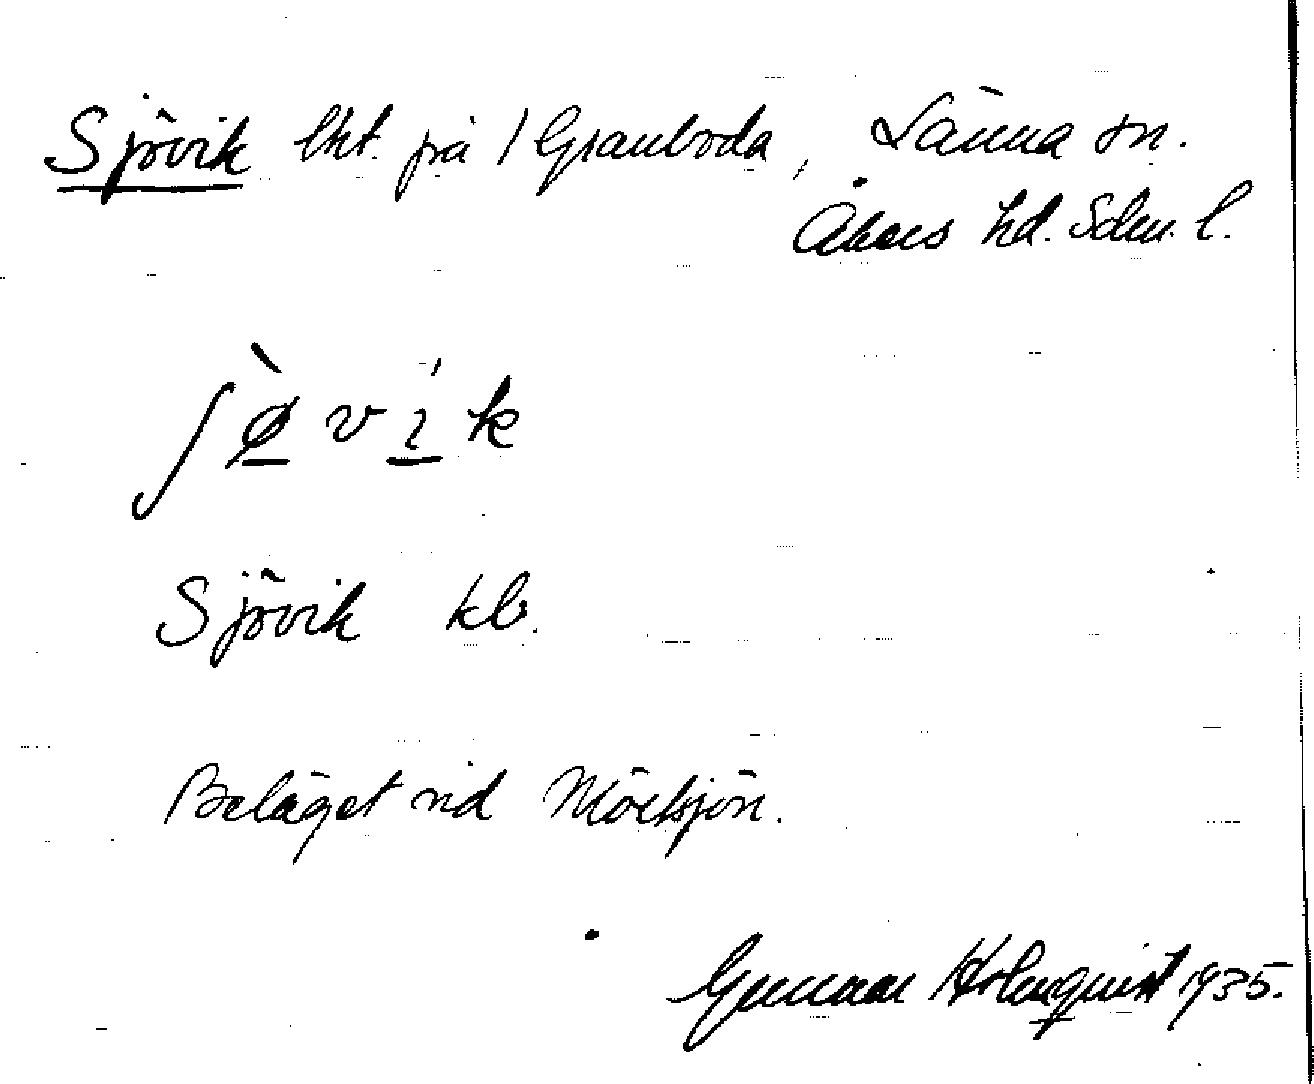 Sjövik lht. på 1 Granboda, Länna sn.
Åkers hd. Sdm. l.
ʃø̀vìk
Sjövik kb.
Beläget vid Mörksjön.
Gunnar Holmquist 1935.